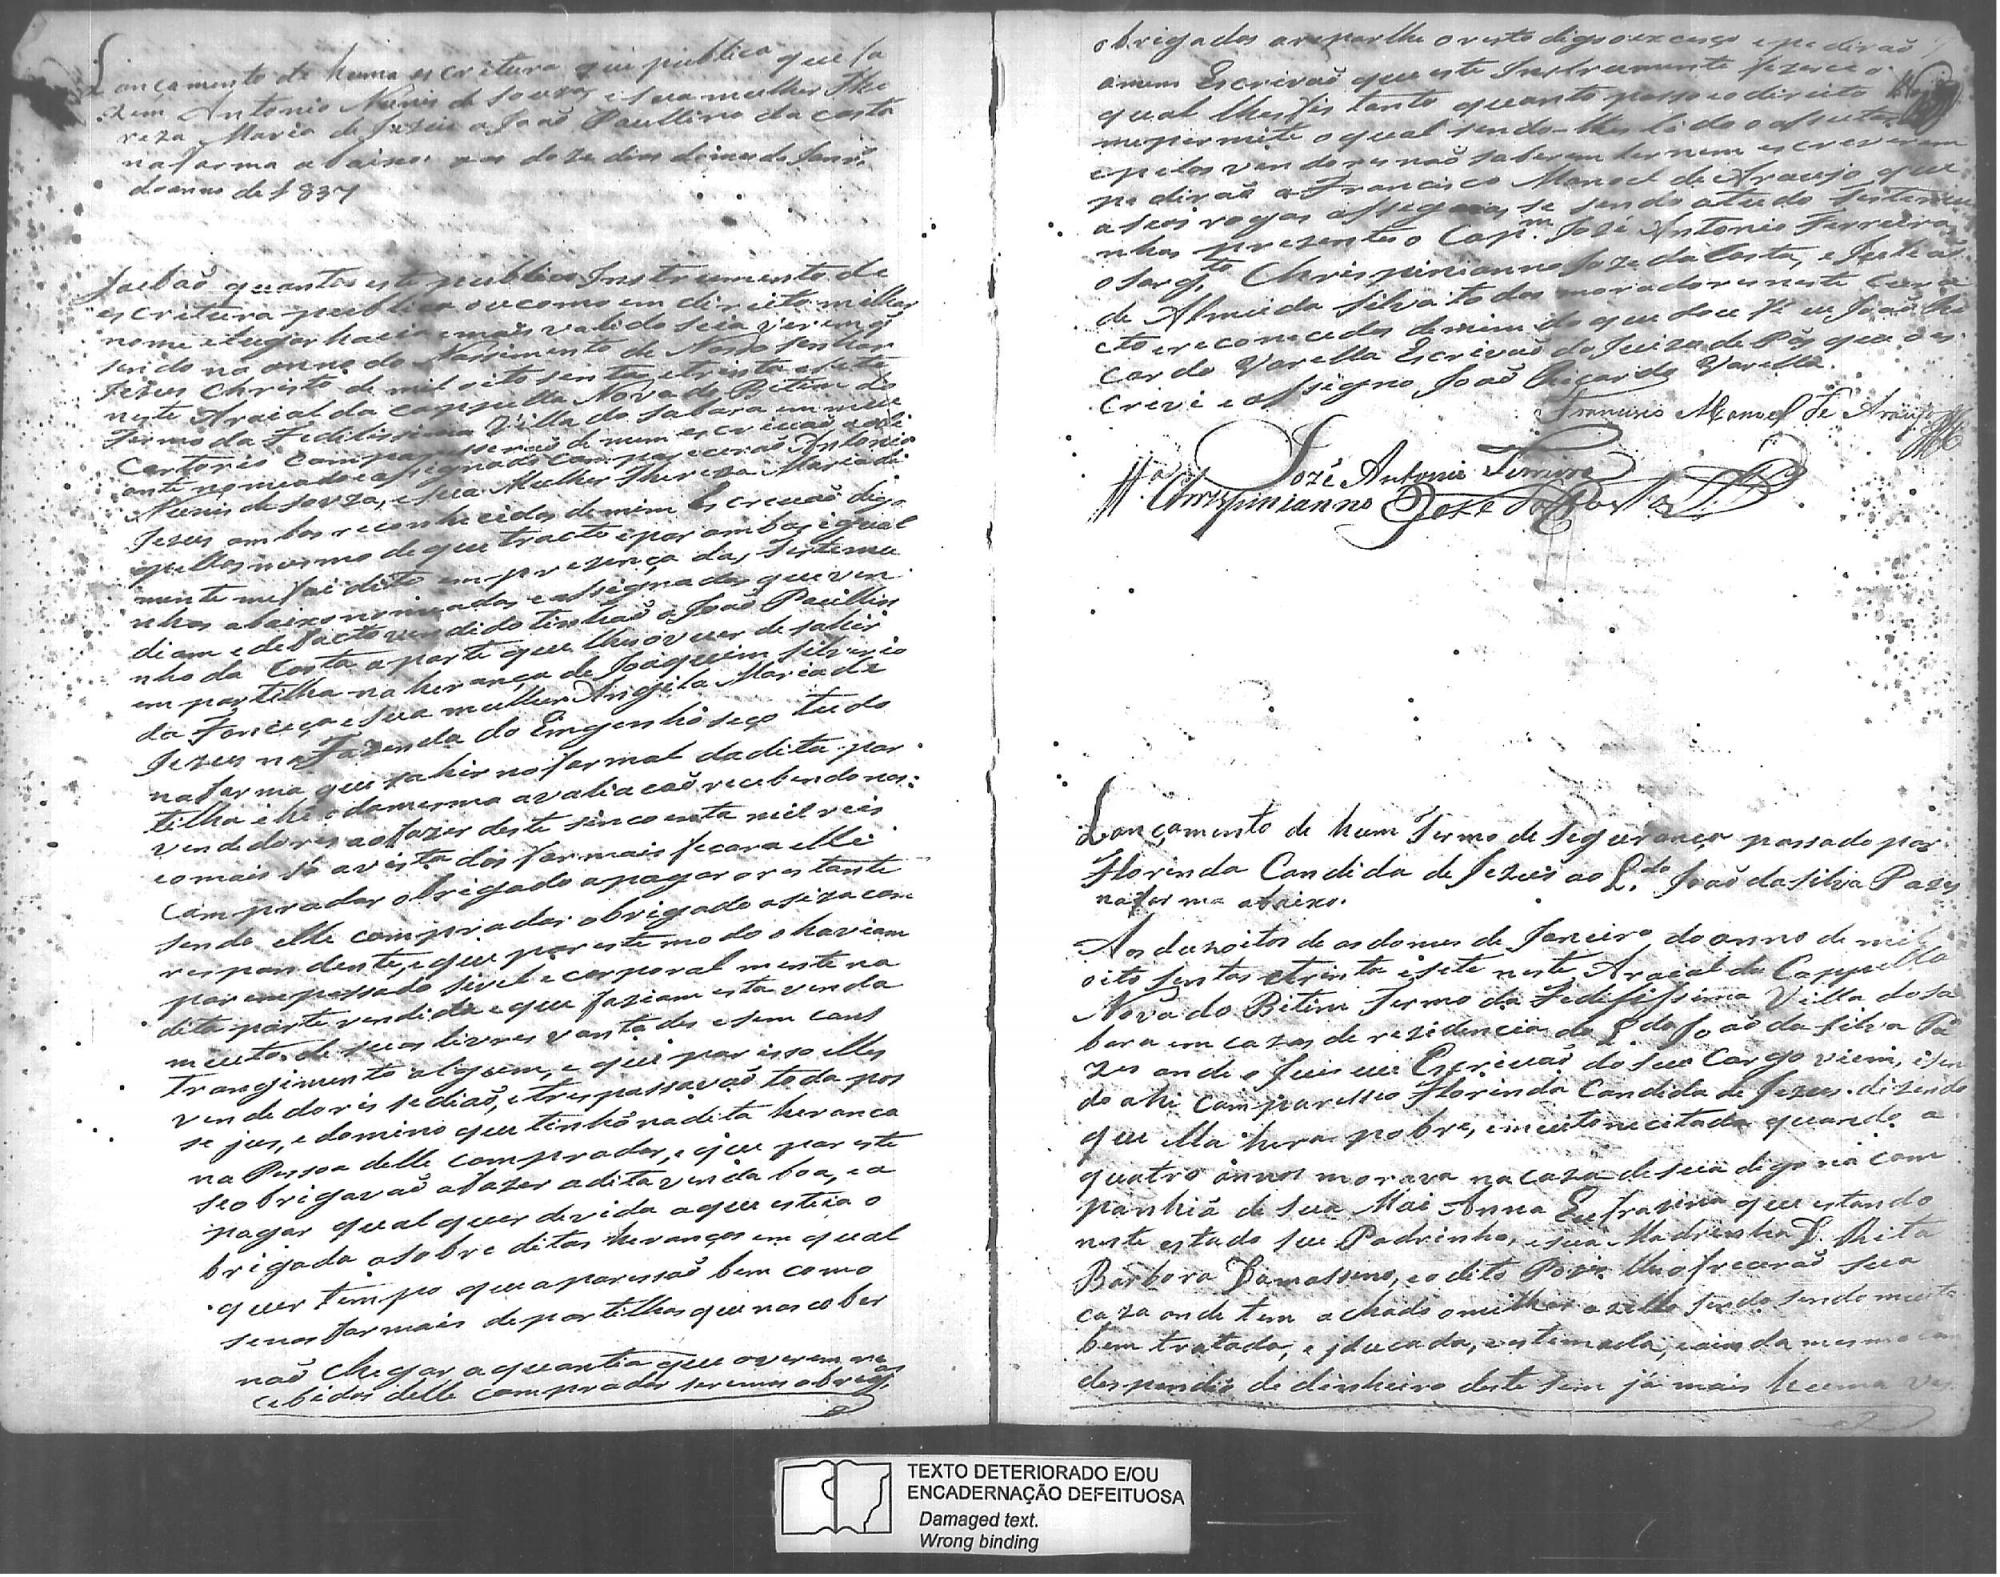 Lançamento de huma escritura que publica que fa
zem Antonio Nunis de Souza, e sua mulher The
reza Maria de Jezus a João Paullino da Costa
na forma abaixo aos doze dias do mes de Janr.o
do anno de 1837
Saibão quantos este publico Instrumento de
escritura publica ou como em direito milhor
nome e lugar haja e mais valido seia virem q
sendo no anno do Nassimento de Nosso Senhor
Jezus Christo de mil oito sentos etrinta e sete
neste Araial da Cappella Nova do Bitim do
Termo da Fidilissima Villa do Sabara em meu
Cartorio comparesserão de mim escrivão adi
ante nomeado e assignado comparecerão Antonio
Nunis de Souza, e sua Mulher Thereza Maria de
Jezus ambos reconhecidos de mim Escrivão digo
pellos mesmo de que tracto e por ambos igual
mente me foi dito em prezença das testemu
nhas abaixo nomeadas e assignadas que ven
diam e de facto vendido tinhão a João Paulli
nho da Costa a parte que lhes ouver de sahir
em partilha na herança de Joaquim Silverio
da Fonceca e sua mulher Angela Maria de
Jezus na Fazenda do Eingenho seco tudo
na forma que sahir no formal da dita par
tilha e he a damesma avaliacão recebendo nos
vendedores ao fazer deste sincoenta mil reis
e o mais só a vista dos formais fecara elle
comprador obrigado a pagar o restante
sendo elle comprador obrigado a siza cor
respondente, e que por este modo o haviam
por empossado sivel e corporal mente na
dita parte vendida e que faziam esta venda
muito de suas livres vontades e sem cons
trangimento algum, e que por isso elles
vendedoris sedião, e trespassavão toda pos
se jus, e domino que tinhõ na dita heranca
na Pessoa delle comprador, e que por este
se obrigavão afazer adita venda boa, e a
pagar qual quer devida a que esteia o
brigada a sobre ditas heranças em qual
quer tempo que aparessão bem como
se nos formais de partilhas que nos couber
não chegar a quantia que overem re
cebidos delle comprador seremos obrig.os
obrigados a reporlhe o resto digo o exceço e pedirão
amim Escrivão que este Instrumento fezece o
qual lhes fis tanto quanto posso e o direito
me permite o qual sendo-lhes lido o assuta
e pelos vendores não saberem ler nem escreverem
pedirão a Francisco Manoel de Araujo que
a seos rogos assignasse sendo atudo testemu
nhas prezentes o Cap.m José Antonio Ferreira,
o Sarg.to Chrispinianno Joze da Costa, e Julião
de Almeida Silva todos moradores neste
cto e reconecidos de mim do que dou fé eu João Ri
cardo Varella Escrivão do Juizo de Pás que o es
crevi e assigno João Ricardo Varella.
Francisco Manoel de Araujo
José Antonio Ferreira
Chrispinianno Joze da Costa
Lançamento de hum Termo de Segurança passado por
Florinda Candida de Jezus ao L.do João da Silva Pazes
na forma abaixo.
Aos duzoitos de as do mes de Janeiro do anno de mil
oito sentos etrinta e sete neste Araial da Cappella
Nova do Bitim Termo da Fidilissima Villa do Sa
bara em cazas de rezidencia do L.do João da Silva Pa
zes onde o fuis eu Escrivão do seu Cargo viem, e sen
do ahi comparesseo Florinda Candida de Jezus dizendo
que ella hera pobre, e muito necitada quando a
quatro annos morava na caza de sua digo na com
panhia de sua Mai Anna Eufrazina que estando
neste estado seu Padrinho, e sua Madrinha D. Rita
Barbora Damasseno, e o dito Pazes lhe ofrecerão sua
caza onde tem achado o milhor azello sendo sendo muito
bem tratada, e iducada, e estimada, e ainda mesmo com
despendio de dinheiro deste sem já mais huma ves